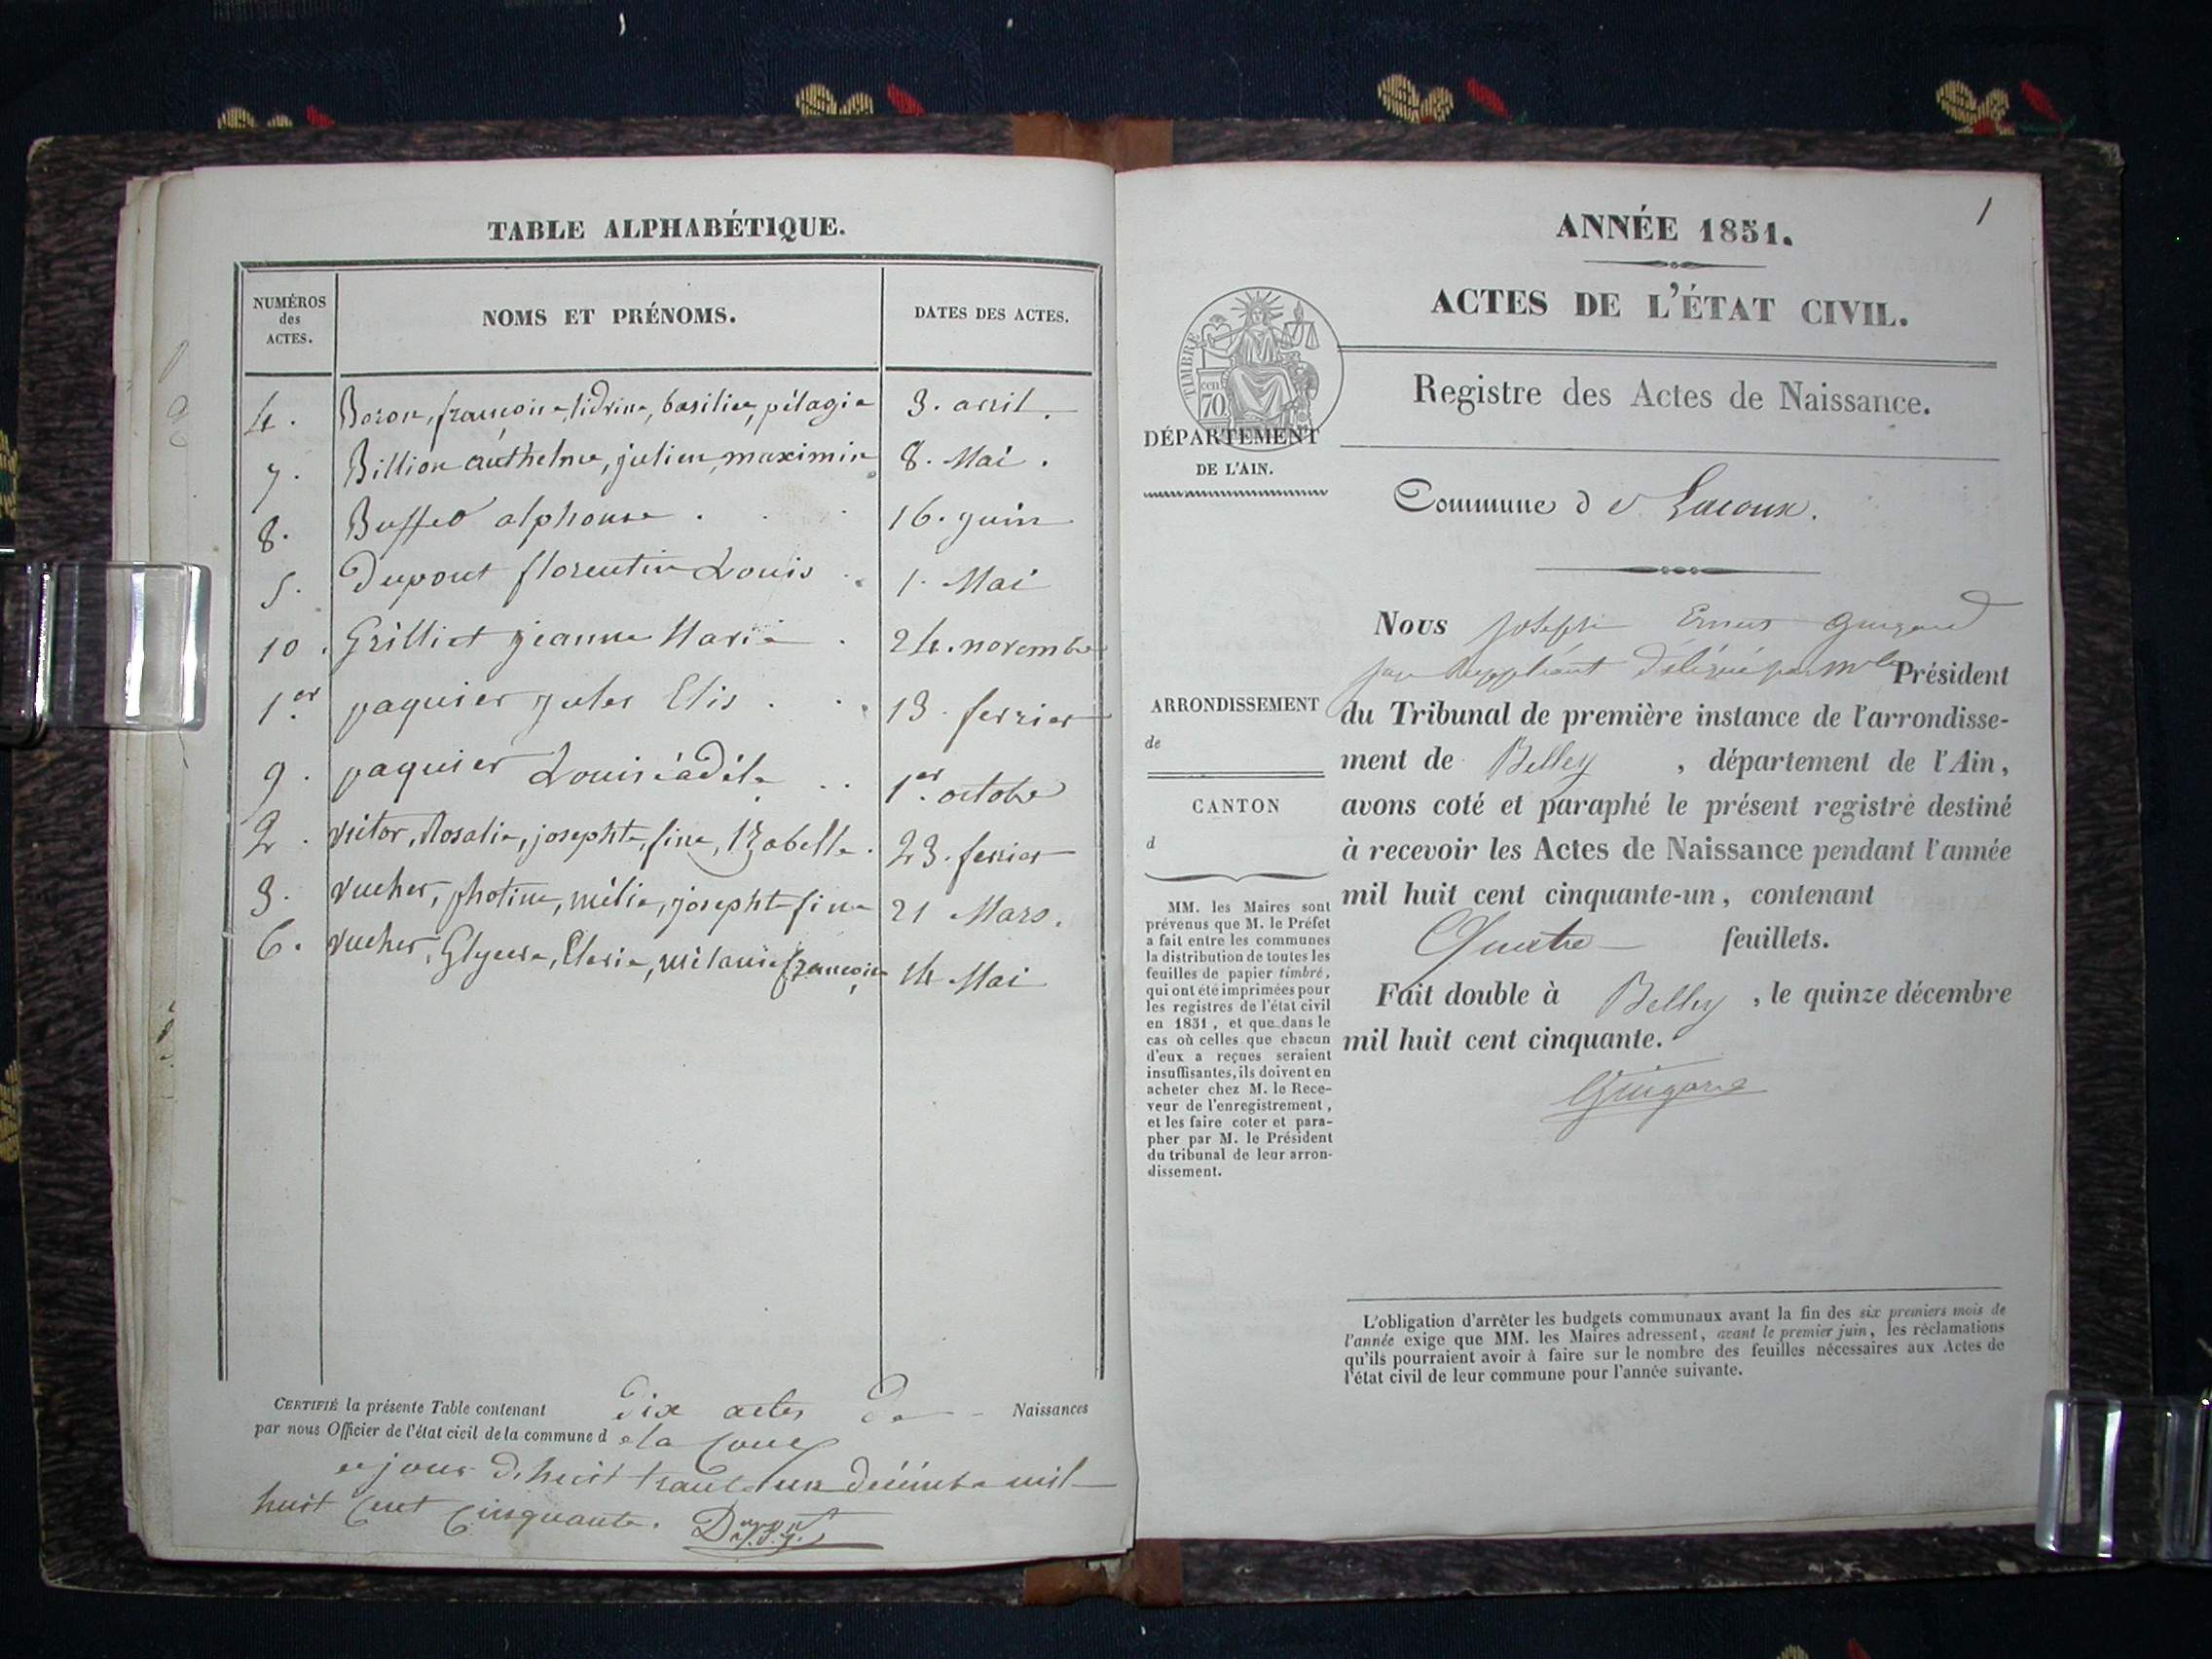 TABLE ALPHABÉTIQUE.
NUMÉROS
des
ACTES.
NOMS ET PRÉNOMS.
DATES DES ACTES.
4. Bozon, françoise, basilice, pélagie 3. avril.
7. Billion authelme, julien, maximin 8. Mai.
8. Buffed alphonse . . . 16. juin
5. Dupont florentin Louis .. 1. Mai
10. Grilliet jeanne Marie . 24. novembre
1.er paquier jules Elis . . . 13. fevrier
9. paquier Louise adèle .. 1er. octobre
2. victor, Rosalie, josephte, fine, Izabelle. 23. fevrier
3. vucher, photine, mélie, josephte fine 21 Mars.
6. vucher, mélanie françoise 14 Mai
CERTIFIÉ la présente Table contenant dix actes de Naissances
par nous Officier de l'état civil de la commune d e la coux
ce jour d'huit trante un décembre mil
huit cent cinquante.
1
ANNÉE 1851.
ACTES DE L'ÉTAT CIVIL.
TIMBRE
cen
70
Registre des Actes de Naissance.
DÉPARTEMENT
DE L'AIN.
Commune d e Lacoux.
Nous joseph Guigard
juge suppléant délégué par Mr le Président
ARRONDISSEMENT
de
du Tribunal de première instance de l'arrondisse-
ment de Belley , département de l'Ain,
CANTON
d
avons coté et paraphé le présent registre destiné
à recevoir les Actes de Naissance pendant l'année
mil huit cent cinquante-un, contenant
Quatre feuillets.
Fait double à Belley , le quinze décembre
mil huit cent cinquante.
Guigard
MM. les Maires sont
prévenus que M. le Préfet
a fait entre les communes
la distribution de toutes les
feuilles de papier timbré,
qui ont été imprimées pour
les registres de l'état civil
en 1851, et que dans le
cas où celles que chacun
d'eux a reçues seraient
insuffisantes, ils doivent en
acheter chez M. le Rece-
veur de l'enregistrement,
et les faire coter et para-
pher par M. le Président
du tribunal de leur arron-
dissement.
L'obligation d'arrêter les budgets communaux avant la fin des six premiers mois de
l'année exige que MM. les Maires adressent, avant le premier juin, les réclamations
qu'ils pourraient avoir à faire sur le nombre des feuilles nécessaires aux Actes de
l'état civil de leur commune pour l'année suivante.